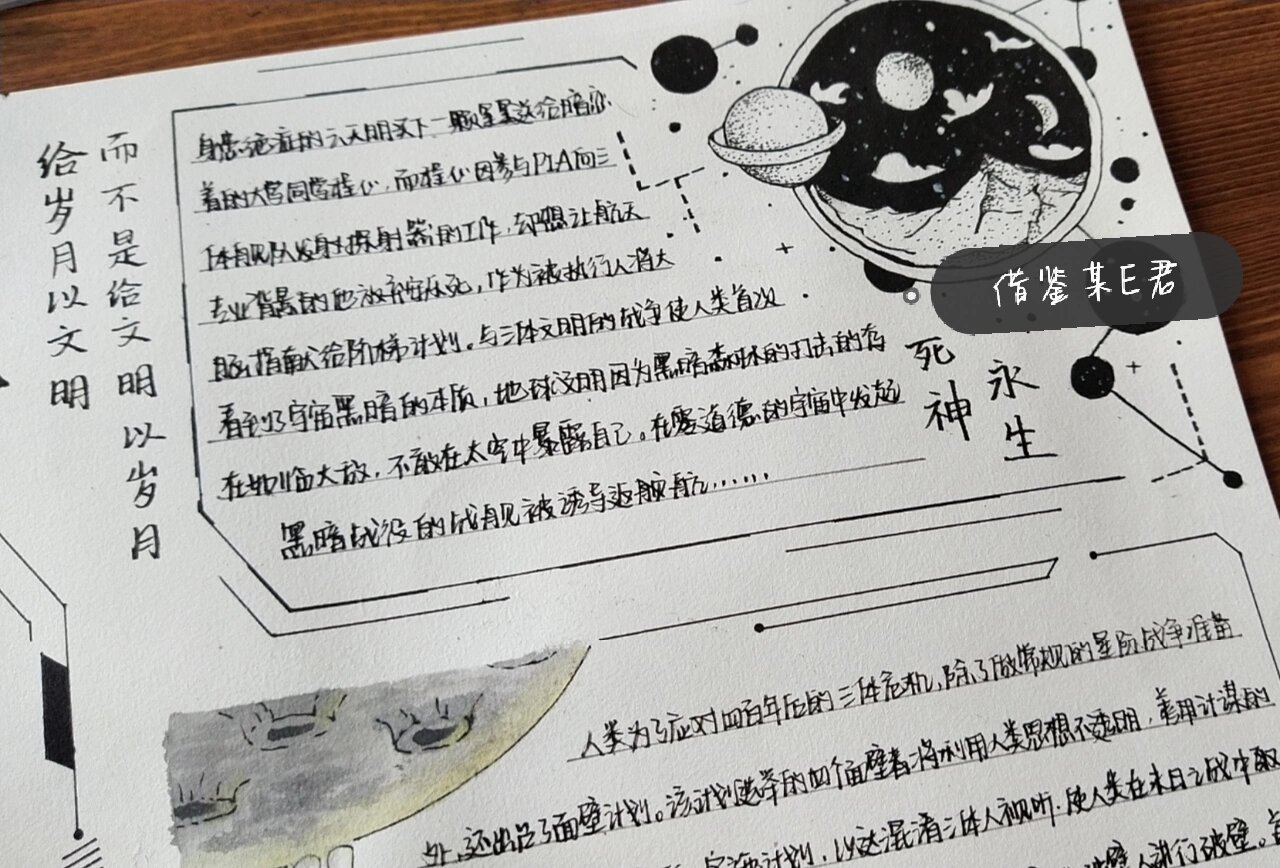 给岁月以文明
而不是给文明以岁月
身患绝症的云天明买下一颗星星送给暗恋
着的大学同学程心,而程心因参与PIA向三
体舰队发射探射器的工作,却想让航天
专业背景的他放弃安乐死,作为被执行人将大
脑捐献给阶梯计划。与三体文明的战争使人类首次
看到了宇宙黑暗的本质,地球文明因为黑暗森林的打击的存
在如临大敌,不敢在太空中暴露自己。在零道德的宇宙中发起
黑暗战役的战舰被诱导返航……
借鉴某E君
死神
永生
人类为了应对四百年后的三体危机,除了做常规的星际战争准备
外,还出台了面壁计划。该计划选择的四个面壁者将利用人类思想不透明,善用计谋的
计划,以达混淆三体人视听,使人类在末日之战中取
壁人进行破壁。